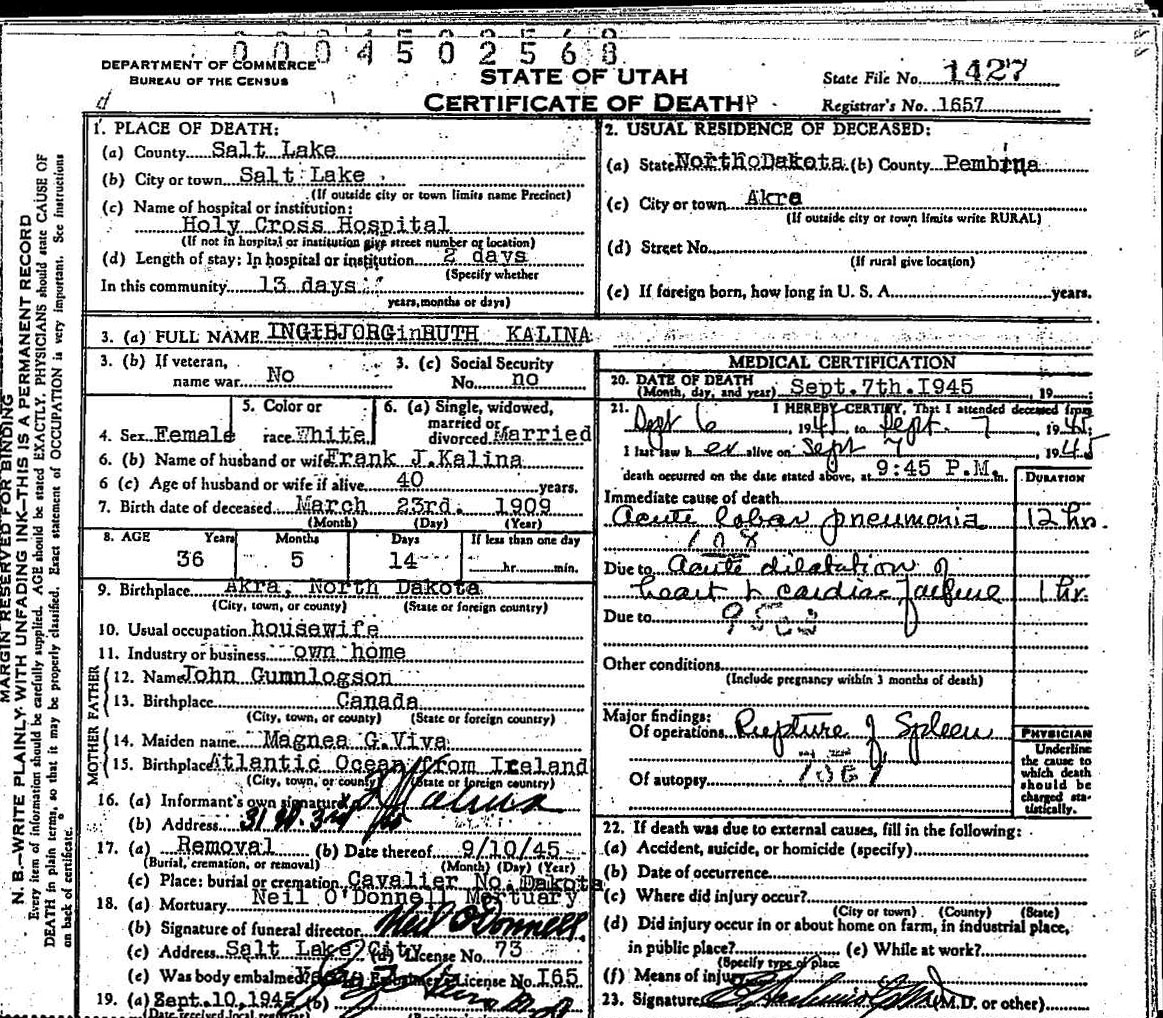 0004502568
DEPARTMENT OF COMMERCE
BUREAU OF THE CENSUS
STATE OF UTAH
CERTIFICATE OF DEATH
State File No. 1427
Registrar's No. 1657
MARGIN RESERVED FOR BINDING
N. B.—WRITE PLAINLY, WITH UNFADING INK—THIS IS A PERMANENT RECORD
Every item of information should be carefully supplied. AGE should be stated EXACTLY. PHYSICIANS should state CAUSE OF
DEATH in plain terms, so that it may be properly classified. Exact statement of OCCUPATION is very important. See instructions
on back of certificate.
1. PLACE OF DEATH:
(a) County Salt Lake
(b) City or town Salt Lake
(If outside city or town limits name Precinct)
(c) Name of hospital or institution:
Holy Cross Hospital
(If not in hospital or institution give street number or location)
(d) Length of stay: In hospital or institution 2 days
(Specify whether
In this community 13 days
years, months or days)
2. USUAL RESIDENCE OF DECEASED:
(a) State North Dakota (b) County Pembina
(c) City or town Akra
(If outside city or town limits write RURAL)
(d) Street No.
(If rural give location)
(e) If foreign born, how long in U. S. A. years.
3. (a) FULL NAME INGIBJORGinRUTH KALINA
3. (b) If veteran, name war No
3. (c) Social Security No. no
4. Sex Female
5. Color or race White
6. (a) Single, widowed, married or divorced Married
6. (b) Name of husband or wife Frank J.Kalina
6 (c) Age of husband or wife if alive 40 years.
7. Birth date of deceased March 23rd. 1909
(Month) (Day) (Year)
8. AGE Years Months Days If less than one day
36 5 14 hr. min.
9. Birthplace Akra, North Dakota
(City, town, or county) (State or foreign country)
10. Usual occupation housewife
11. Industry or business own home
FATHER
12. Name John Gunnlogson
13. Birthplace Canada
(City, town, or county) (State or foreign country)
MOTHER
14. Maiden name Magnea G.Viva
15. Birthplace Atlantic Ocean from Ireland
(City, town, or county) (State or foreign country)
16. (a) Informant's own signature Kalina
(b) Address 31 W. 3rd
17. (a) Removal (b) Date thereof 9/10/45
(Burial, cremation, or removal) (Month) (Day) (Year)
(c) Place: burial or cremation Cavalier No. Dakota
18. (a) Mortuary Neil O'Donnell Mortuary
(b) Signature of funeral director Neil O'Donnell
(c) Address Salt Lake City (d) License No. 73
(e) Was body embalmed? Embalmer's License No. I65
19. (a) Sept.10,1945 (b)
(Date received local registrar)
MEDICAL CERTIFICATION
20. DATE OF DEATH
(Month, day, and year) Sept.7th.I945 19
21. I HEREBY CERTIFY, That I attended deceased from
Sept 6 1945 to Sept. 7 1945
I last saw her alive on Sept 7, 1945
death occurred on the date stated above, at 9:45 P.M. m.
DURATION
Immediate cause of death
Acute lobar pneumonia 12 hr.
108
Due to Acute dilatation of
heart & cardiac failure 1 hr.
Due to
Other conditions
(Include pregnancy within 3 months of death)
Major findings:
Of operations Rupture of Spleen
Of autopsy
PHYSICIAN
Underline
the cause to
which death
should be
charged sta-
tistically.
22. If death was due to external causes, fill in the following:
(a) Accident, suicide, or homicide (specify)
(b) Date of occurrence
(c) Where did injury occur?
(City or town) (County) (State)
(d) Did injury occur in or about home on farm, in industrial place,
in public place? (e) While at work?
(Specify type of place
(f) Means of injury
23. Signature (M.D. or other)